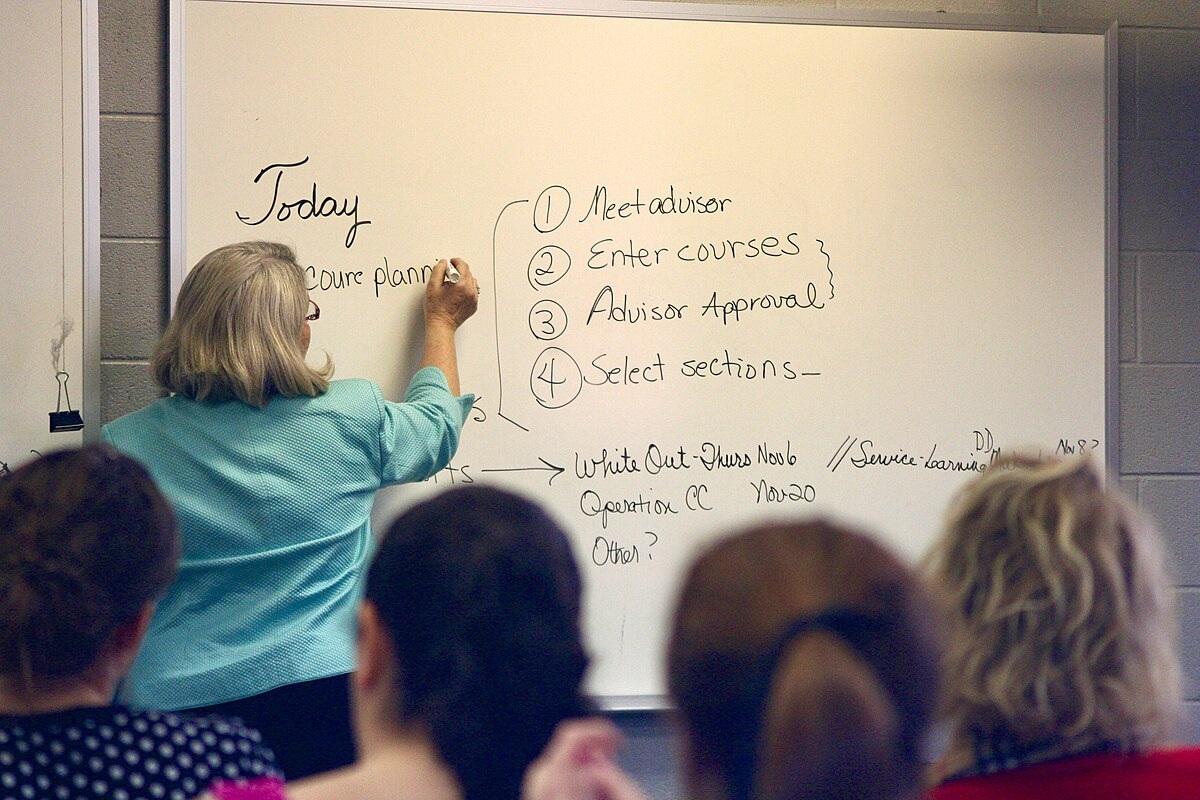 Today
coure planni
① Meet advisor
② Enter courses
③ Advisor Approval
④ Select sections_
s
nts → White Out-Thurs Nov 6 // Service-Learning
DD
Nov 8?
Operation CC Nov 20
Other?